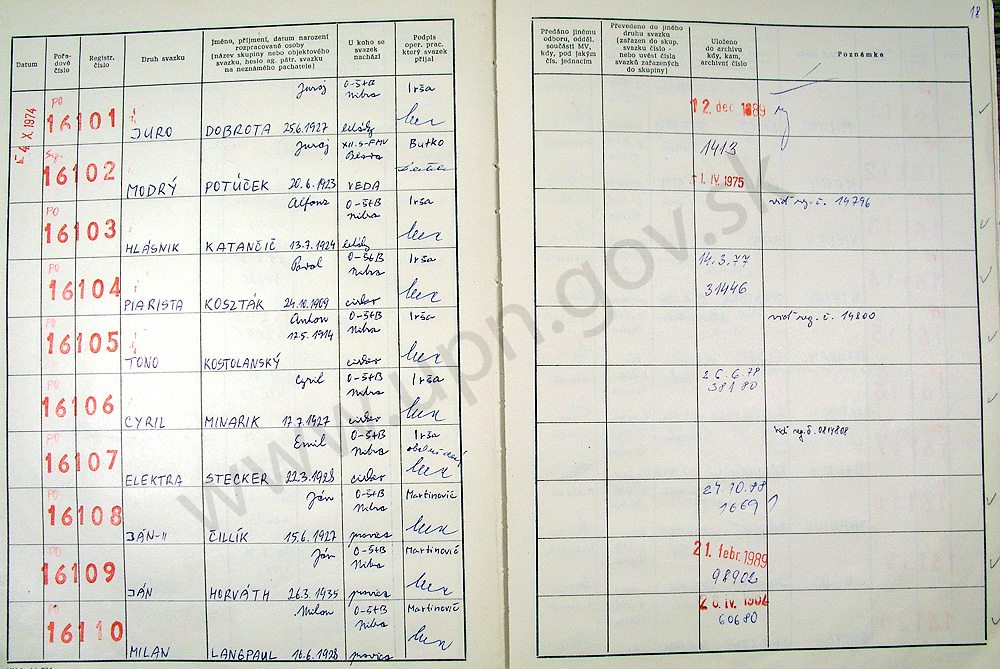 18
Datum
Pořadové číslo
Registr. číslo
Druh svazku
Jméno, příjmení, datum narození rozpracované osoby (název skupiny nebo objektového svazku, heslo ag. pátr. svazku na neznámého pachatele)
U koho se svazek nachází
Podpis oper. prac. který svazek přijal
Předáno jinému odboru, odděl. součásti MV, kdy, pod jakým čís. jednacím
Převedeno do jiného druhu svazku (zařazen do skup. svazku číslo - nebo uvést čísla svazků zařazených do skupiny)
Uloženo do archivu kdy, kam, archivní číslo
Poznámka
4. X. 1974
PO
Juraj O-ŠtB Irša
Nitra
16101 JURO DOBROTA 25.6.1927
12. dec 1989
Juraj XII.S-FMV Butko
16102 MODRÝ POTÚČEK 20.6.1923 VEDA
1413
1. IV. 1975
PO
Alfonz O-ŠtB Irša
Nitra
16103 HLÁSNIK KATANČIČ 13.7.1924
viď reg. č. 14796
PO
Pavol O-ŠtB Irša
Nitra
16104 PIARISTA KOSZTÁK 24.10.1909
14.3.77
31446
PO
Anton O-ŠtB Irša
17.5.1914 Nitra
16105 TONO KOSTOLANSKÝ
viď reg. č. 14800
PO
Cyril O-ŠtB Irša
Nitra
16106 CYRIL MINARIK 17.7.1927
26.6.78
38180
PO
Emil O-ŠtB Irša
Nitra
16107 ELEKTRA STECKER 22.3.1928
viď reg. č.
PO
Ján O-ŠtB Martinovič
Nitra
16108 JÁN-II ČILLÍK 15.6.1927
27.10.88
PO
Ján O-ŠtB Martinovič
Nitra
16109 JÁN HORVÁTH 26.3.1935
21. febr. 1989
98902
PO
Milan O-ŠtB Martinovič
Nitra
16110 MILAN LANGPAUL 16.6.1928
60680
www.upn.gov.sk